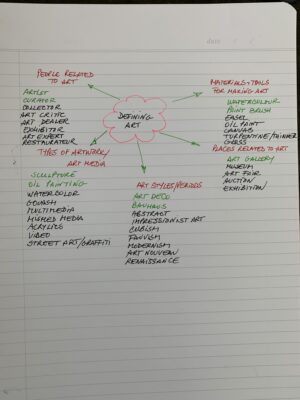 date
PEOPLE RELATED
TO ART
ARTIST
CURATOR
COLLECTOR
ART CRITIC
ART DEALER
EXHIBITOR
ART EXPERT
RESTAURATEUR
DEFINING
ART
MATERIALS + TOOLS
FOR MAKING ART
WATERCOLOUR
PAINT BRUSH
EASEL
OIL PAINT
CANVAS
TURPENTINE/THINNER
PLACES RELATED TO ART
ART GALLERY
MUSEUM
ART FAIR
AUCTION
EXHIBITION
TYPES OF ARTWORK/
ART MEDIA
SCULPTURE
OIL PAINTING
WATERCOLOR
GOUASH
MULTIMEDIA
MIXED MEDIA
ACRYLICS
VIDEO
STREET ART/GRAFFITI
ART STYLES/PERIODS
ART DECO
BAUHAUS
ABSTRACT
IMPRESSIONIST ART
CUBISM
FAUVISM
MODERNISM
ART NOUVEAU
RENAISSANCE